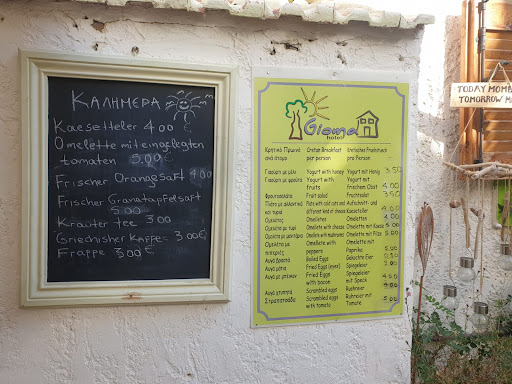 ΚΑΛΗΜΕΡΑ
Kaesetteler 4.00
Omelette mit eingelegten
tomaten 5.00 €
Frischer Orangesaft 4.00
Frischer Granatapfelsaft
5.00
Kräuter tee 3.00
Griechischer Kaffe = 3.00 €
Frappe 3.00 €
hotel
Κρητικό Πρωινό Cretan Breakfast Kretisches Fruhstuck
ανά άτομο per person pro Person
Γιαούρτι με μέλι Yogurt with honey Yogurt mit Honig 3.50
Γιαούρτι με φρούτα Yogurt with Yogurt mit
fruits frischem Obst 4.00
Φρουτοσαλάτα Fruit salad Fruchtsalat 3.50
Πιάτο με αλλαντικά Plate with cold cuts and Aufschnitt- und
και τυριά different kind of cheeses Kaeseteller 4.00
Ομελέτες Omelettes Omeletten 4.00
Ομελέτα με τυρί Omelette with cheese Omelette mit Kaese 5.00
Ομελέτα με μανιτάρια Omelette with mushrooms Omelette mit Pilzen 5.00
Ομελέτα με Omellete with Omelette mit
πιπεριές peppers Paprika 5.00
Αυγά βραστά Boiled Eggs Gekochte Eier
Αυγά μάτια Fried Eggs Spiegeleier
Αυγά με μπέικον Fried Eggs Spiegeleier
with bacon mit Speck
Αυγά χτυπητά Scrambled eggs Ruhreier
Στραπατσάδα Scrambled eggs Ruhreier mit 5.00
with tomato Tomate
TODAY
TOMORROW